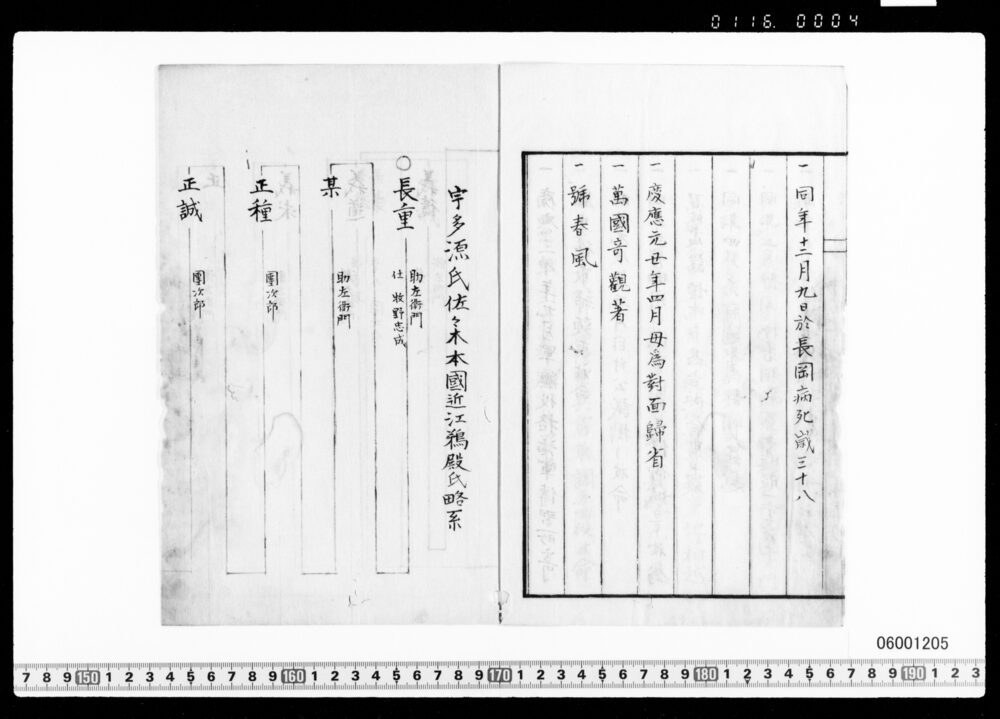 0116. 0004
一 同年十二月九日於長岡病死歳三十八
一 慶應元丑年四月毋為對面歸省
一 萬國奇觀著
一 號春風
宇多源氏佐々木本國近江鵜殿氏略系
○長重
助左衛門
仕 牧野忠成
某
助左衛門
正種
團次郎
正誠
團次郎
06001205
7 8 9 150 1 2 3 4 5 6 7 8 9 160 1 2 3 4 5 6 7 8 9 170 1 2 3 4 5 6 7 8 9 180 1 2 3 4 5 6 7 8 9 190 1 2 3